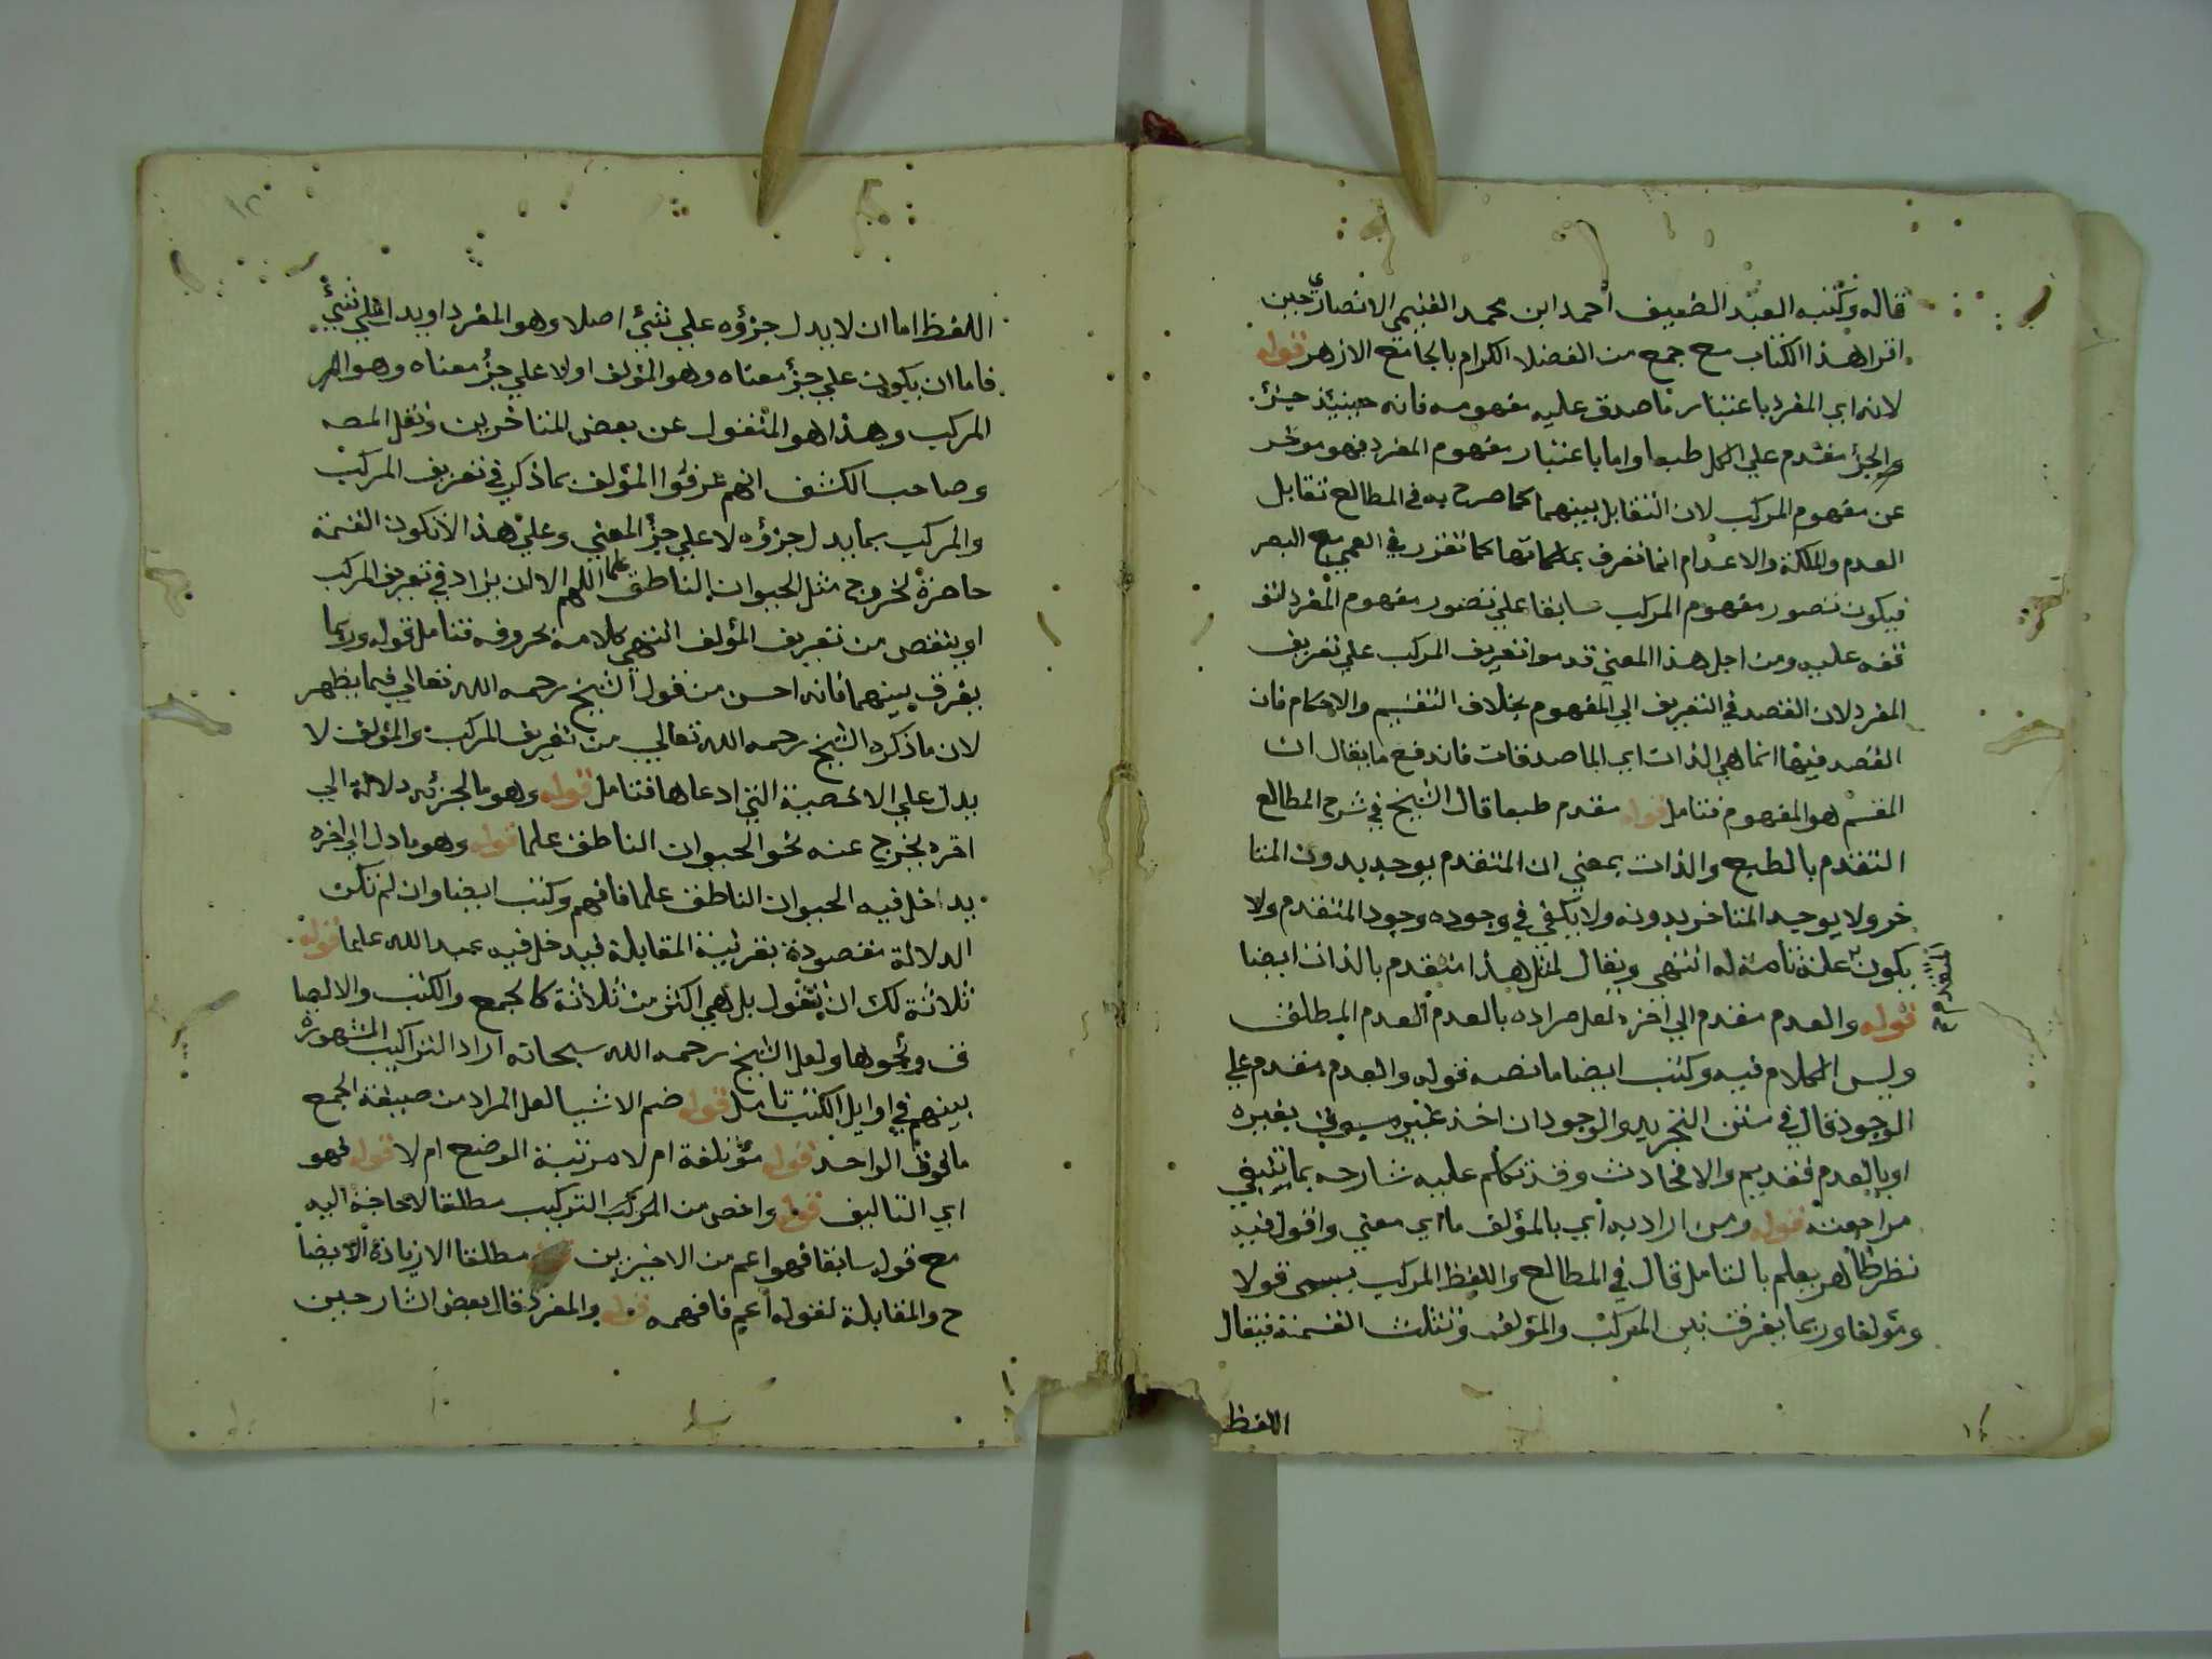 قاله وكتبه العبد الضعيف احمد ابن محمد الغنيمي الانصاري حين
اقرا هذا الكتاب مع جمع من الفضلا الكرام بالجامع الازهر قوله
لانه اي المفرد باعتبار ما صدق عليه مفهومه فانه حينيذ جزؤ
والجزؤ مقدم علي الكل طبعا واما باعتبار مفهوم المفرد فهو موخر
عن مفهوم المركب لان التقابل بينهما كما صرح به في المطالع تقابل
العدم والملكة والاعدام انما تعرف بملكاتها كما تقرر في العمي مع البصر
فيكون تصور مفهوم المركب سابقا علي تصور مفهوم المفرد لتو
قفه عليه ومن اجل هذا المعني قدموا تعريف المركب علي تعريف
المفرد لان القصد في التعريف الي المفهوم بخلاف التقسيم والاحكام فان
القصد فيها انما هي الذات اي الماصدقات فاندفع ما يقال ان
المقسم هو المفهوم فتامل قوله مقدم طبعا قال الشيخ في شرح المطالع
التقدم بالطبع والذات بمعني ان المتقدم يوجد بدون المتا
خر ولا يوجد المتاخر بدونه ولا يكفي في وجوده وجود المتقدم ولا
يكون علة تامة له انتهي ويقال لمثل هذا متقدم بالذات ايضا
المتقدم صح
قوله والعدم مقدم الي اخره لعل مراده بالعدم العدم المطلق
وليس الكلام فيه وكتب ايضا ما نصه قوله والعدم مقدم علي
الوجود قال في متن التجريد والوجود ان اخذ غير مسبوق بغيره
او بالعدم فقديم والا فحادث وقد تكلم عليه شارحه بما ينبغي
مراجعته قوله ومن اراد به اي بالمؤلف ما اي معني واقول فيه
نظر ظاهر يعلم بالتامل قال في المطالع واللفظ المركب يسمي قولا
ومؤلفا وربما يفرق بين المركب والمؤلف وتثلث القسمة فيقال
اللفظ
اللفظ اما ان لا يدل جزؤه علي شيئ اصلا وهو المفرد او يدل علي شيئ
فاما ان يكون علي جزؤ معناه وهو المؤلف او لا علي جزؤ معناه وهو
المركب وهذا هو المنقول عن بعض المتاخرين ونقل المصه
وصاحب الكشف انهم عرفوا المؤلف بما ذكر في تعريف المركب
والمركب بما يدل جزؤه لا علي جزؤ المعني وعلي هذا لا تكون القسمة
حاصرة لخروج مثل الحيوان الناطق علما اللهم الا ان يزاد في تعريف المركب
او ينقص من تعريف المؤلف انتهي كلامه بحروفه فتامل قوله وربما
يفرق بينهما فانه احسن من قول الشيخ رحمه الله تعالي فيما يظهر
لان ما ذكره الشيخ رحمه الله تعالي من تعريف المركب والمؤلف لا
يدل علي الاخصية التي ادعاها فتامل قوله وهو ما لجزئه دلالة الي
اخره يخرج عنه نحو الحيوان الناطق علما قوله وهو ما دل الي اخره
يداخل فيه الحيوان الناطق علما فافهم وكتب ايضا وان لم تكن
الدلالة مقصودة بقرينة المقابلة فيدخل فيه عبد الله علما قوله
ثلاثة لك ان تقول بل هي اكثر من ثلاثة كالجمع والكتب والالصا
ق ونحوها ولعل الشيخ رحمه الله سبحانه اراد التراكيب المشهورة
بينهم في اوايل الكتب تامل قوله ضم الاشيا لعل المراد من صيغة الجمع
ما فوق الواحد قوله مؤتلفة ام لا مرتبة الوضع ام لا قوله فهو
اي التاليف قوله واخص من المركب التركيب مطلقا لا حاجة اليه
مع قوله سابقا فهو اعم من الاخيرين مطلقا الا زيادة الايضا
ح والمقابلة لقوله اعم فافهمه قوله والمفرد قال بعض الشارحين